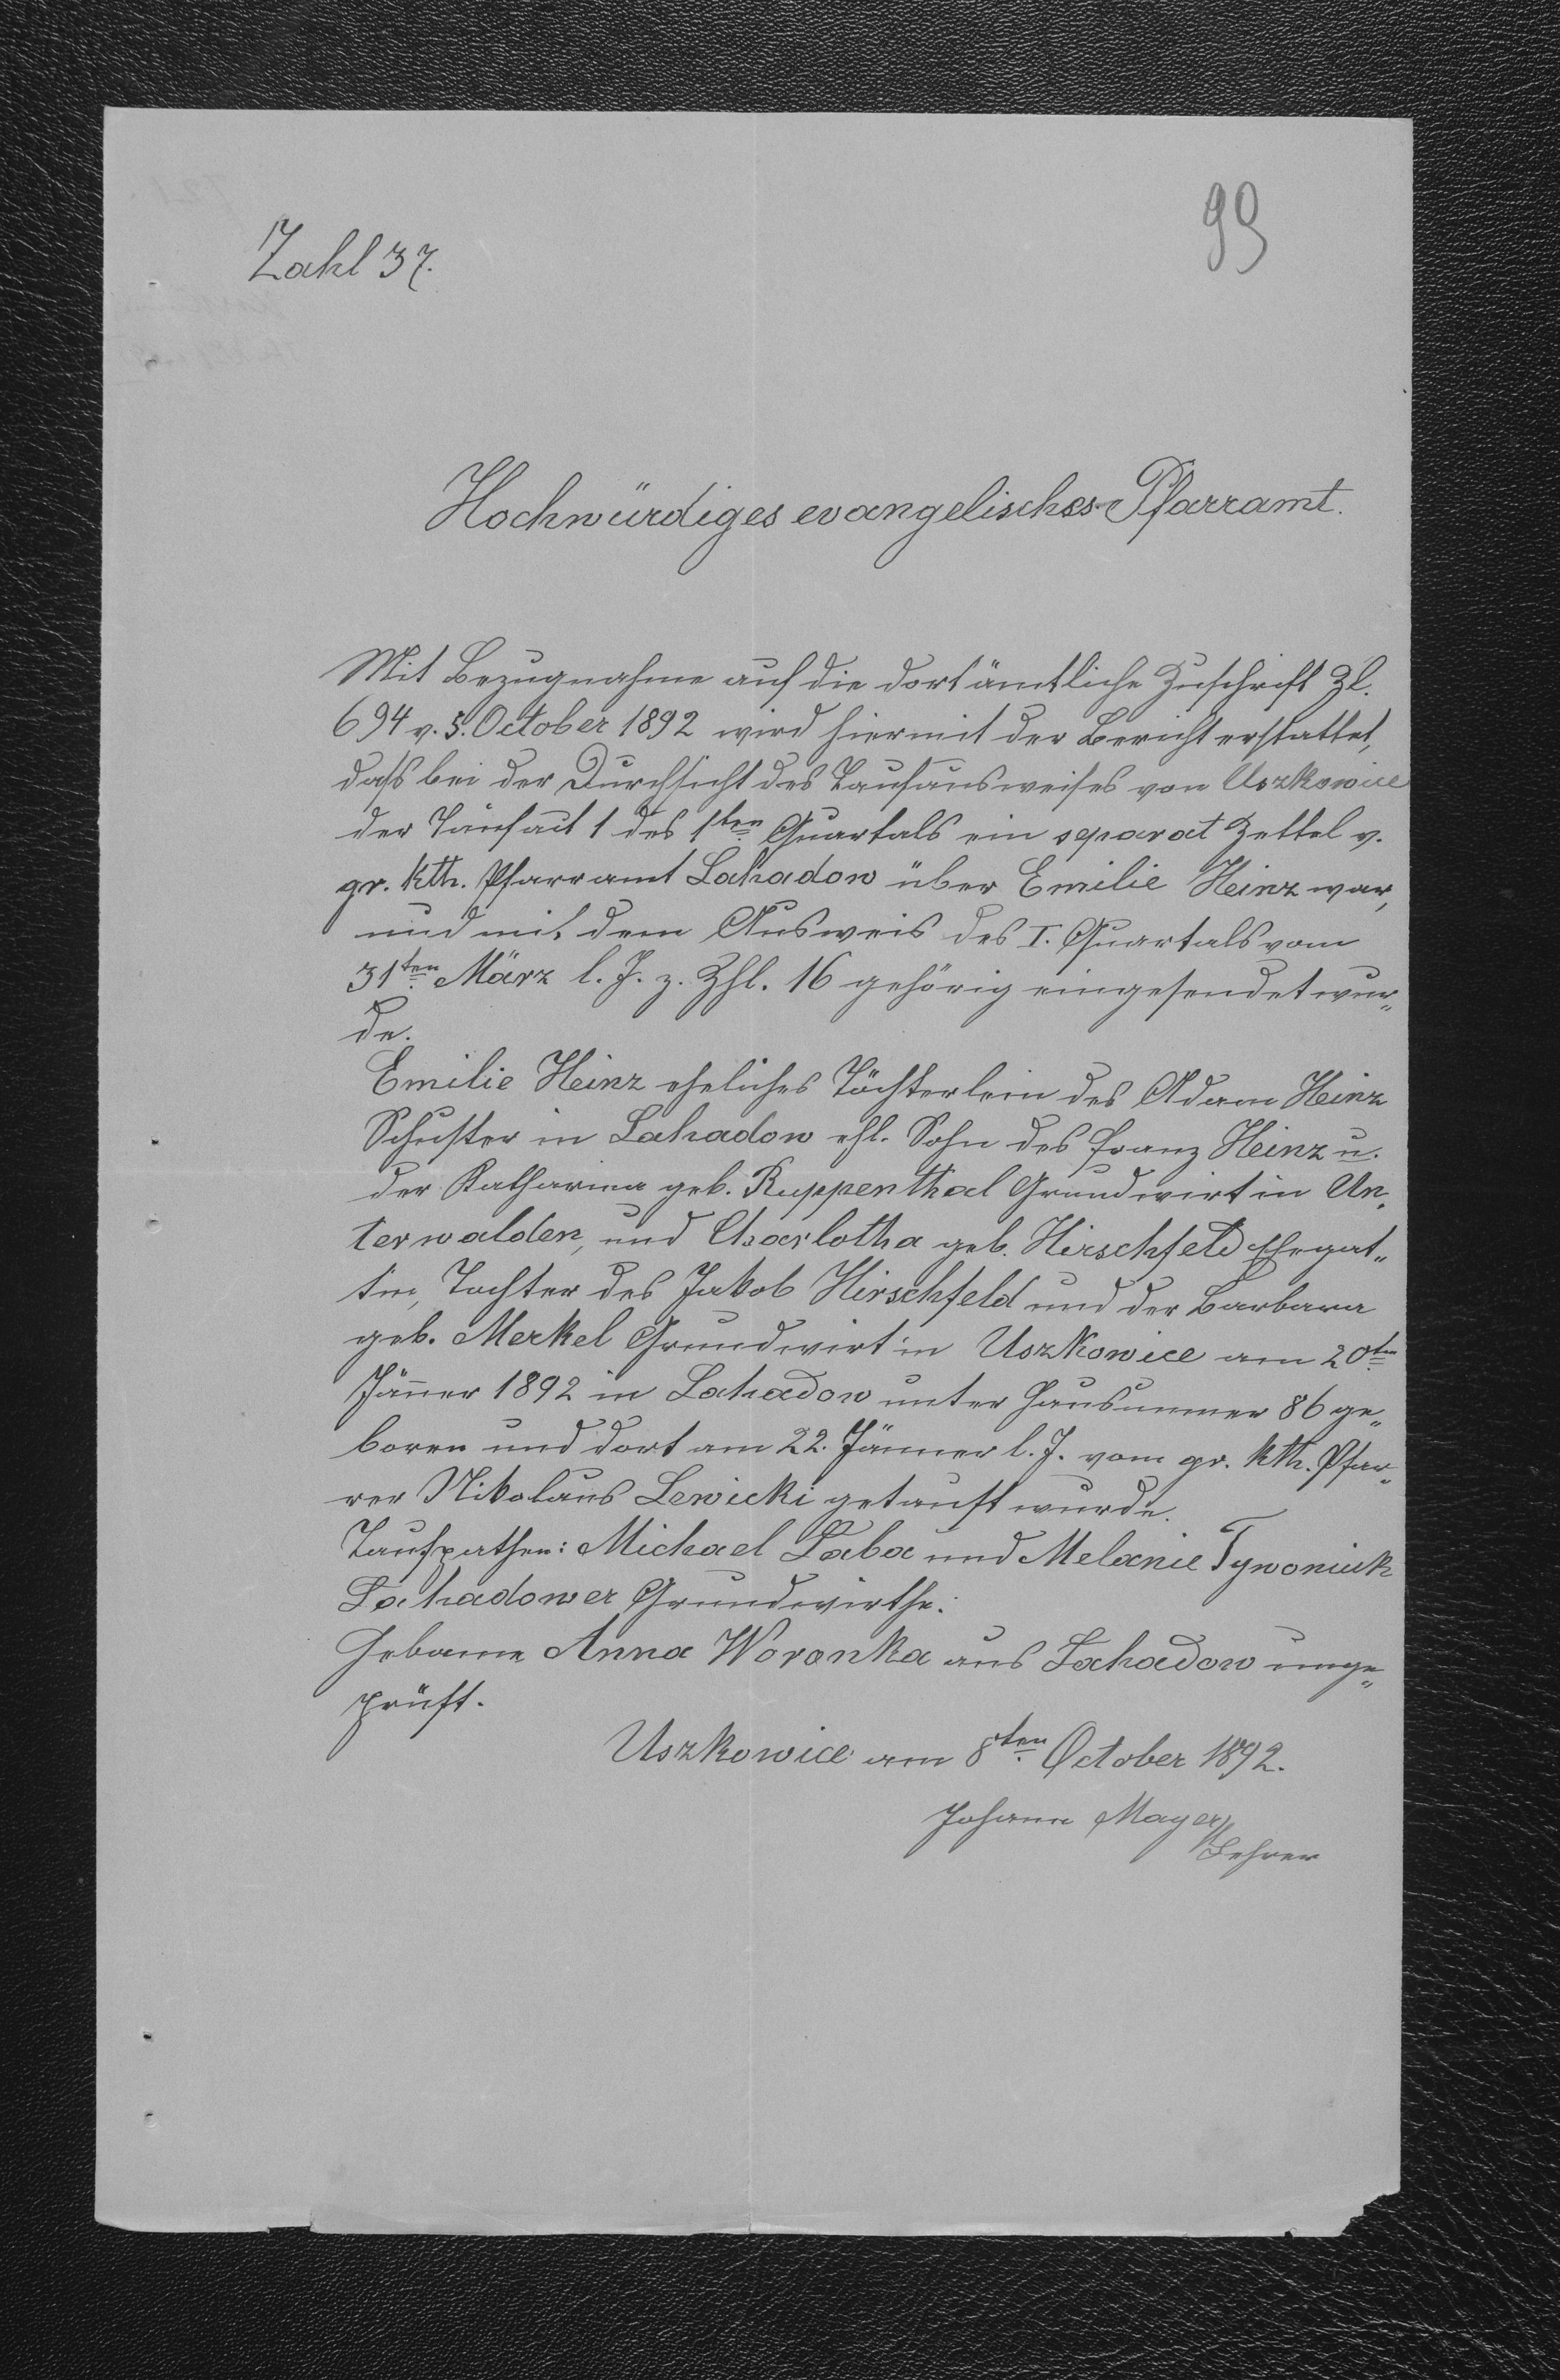 99
Zahl 37.
Hochwürdiges evangelisches Pfarramt.
Mit Bezugnahme auf die dortämtliche Zuschrift Zl.
694 v. 5. October 1892 wird hiermit der Bericht erstattet,
daß bei der Durchsicht des Taufausweises von Uszkowice
der Taufact 1 des 1ten Quartals ein separat Zettel v.
gr. kth. Pfarramt Lahadow über Emilie Heinz war,
und mit dem Ausweis des I. Quartals vom
31ten März l. J. z. Zhl. 16 gehörig eingesendet wur„
de.
Emilie Heinz eheliches Töchterlein des Adam Heinz
Schuster in Lahadow ehl. Sohn des Franz Heinz u.
der Katharina geb. Ruppenthal Grundwirt in Un„
terwalden, und Charlotha geb. Hirschfeld Ehegat„
tin, Tochter des Jakob Hirschfeld und der Barbara
geb. Merkel Grundwirt in Uszkowice am 20ten
Jänner 1892 in Lahadow unter Hausnummer 86 ge„
boren und dort am 22. Jänner l. J. vom gr. kth. Pfar„
rer Nikolaus Lewicki getauft wurde.
Taufpathen: Michael Laba und Melanie Tywoniuk
Lahadower Grundwirthe.
Hebame Anna Woronka aus Lahadow unge„
prüft.
Uszkowice am 8ten October 1892.
Johann Mayer
Lehrer